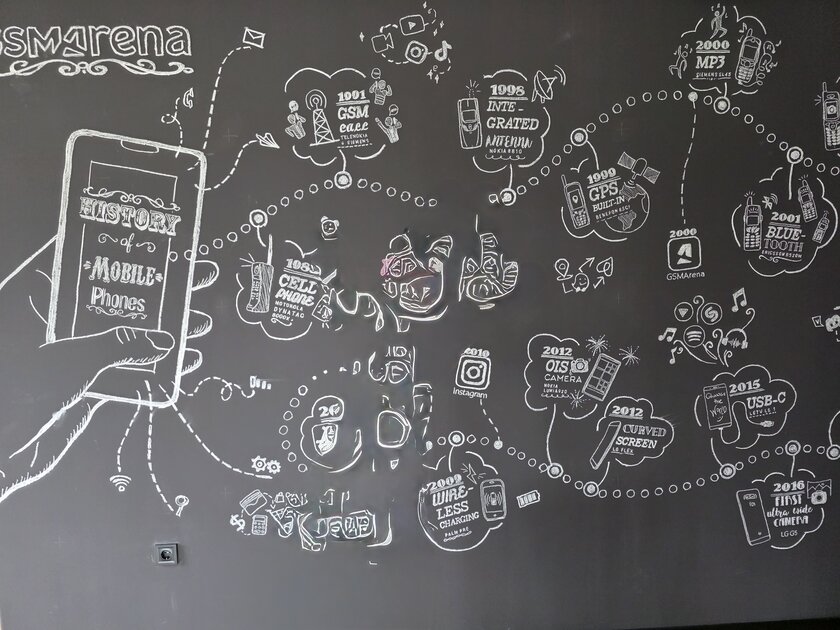 GSMArena
HISTORY
of
MOBILE
Phones
1991
GSM
call
TELENOKIA
+ SIEMENS
1998
INTE-
GRATED
ANTENNA
NOKIA 8810
2000
MP3
SIEMENS SL45
1999
GPS
BUILT-IN
BENEFON ESC!
2001
BLUE-
TOOTH
ERICSSON R520M
2000
GSMArena
CELL
PHONE
MOTOROLA
DYNATAC
8000X
2010
Instagram
2012
OIS
CAMERA
NOKIA
LUMIA 920
2012
CURVED
SCREEN
LG FLEX
2015
USB-C
LETV LE 1
2009
WIRE-
LESS
CHARGING
PALM PRE
2016
FIRST
ultra wide
CAMERA
LG G5